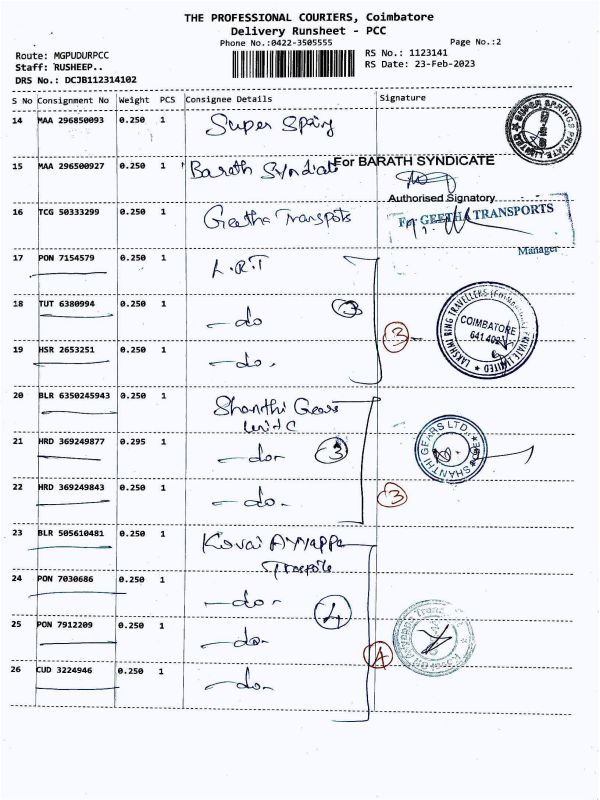 THE PROFESSIONAL COURIERS, Coimbatore
Delivery Runsheet - PCC
Phone No.:0422-3505555
Page No.:2
Route: MGPUDURPCC
RS No.: 1123141
Staff: RUSHEEP..
RS Date: 23-Feb-2023
DRS No.: DCJB112314102
S No Consignment No Weight PCS Consignee Details Signature
14 MAA 296850093 0.250 1 Super Spring
SUPER SPRINGS PRIVATE LIMITED
15 MAA 296500927 0.250 1 Barath Syndicate
For BARATH SYNDICATE
Authorised Signatory
16 TCG 50333299 0.250 1 Geetha Transpots
For GEETHA TRANSPORTS
Manager
17 PON 7154579 0.250 1 L.R.T
18 TUT 6380994 0.250 1 - do 3
3
LAKSHMI RING TRAVELLERS (Coimbatore) PRIVATE LIMITED
COIMBATORE
641 402
19 HSR 2653251 0.250 1 - do.
20 BLR 6350245943 0.250 1 Shanthi Gears
Unit C
21 HRD 369249877 0.295 1 - do - 3
SHANTHI GEARS LTD.
22 HRD 369249843 0.250 1 - do - 3
23 BLR 505610481 0.250 1 Kovai Ayyappa
Transpots
24 PON 7030686 0.250 1 - do - 4
25 PON 7912209 0.250 1 - do - 4
26 CUD 3224946 0.250 1 - do -